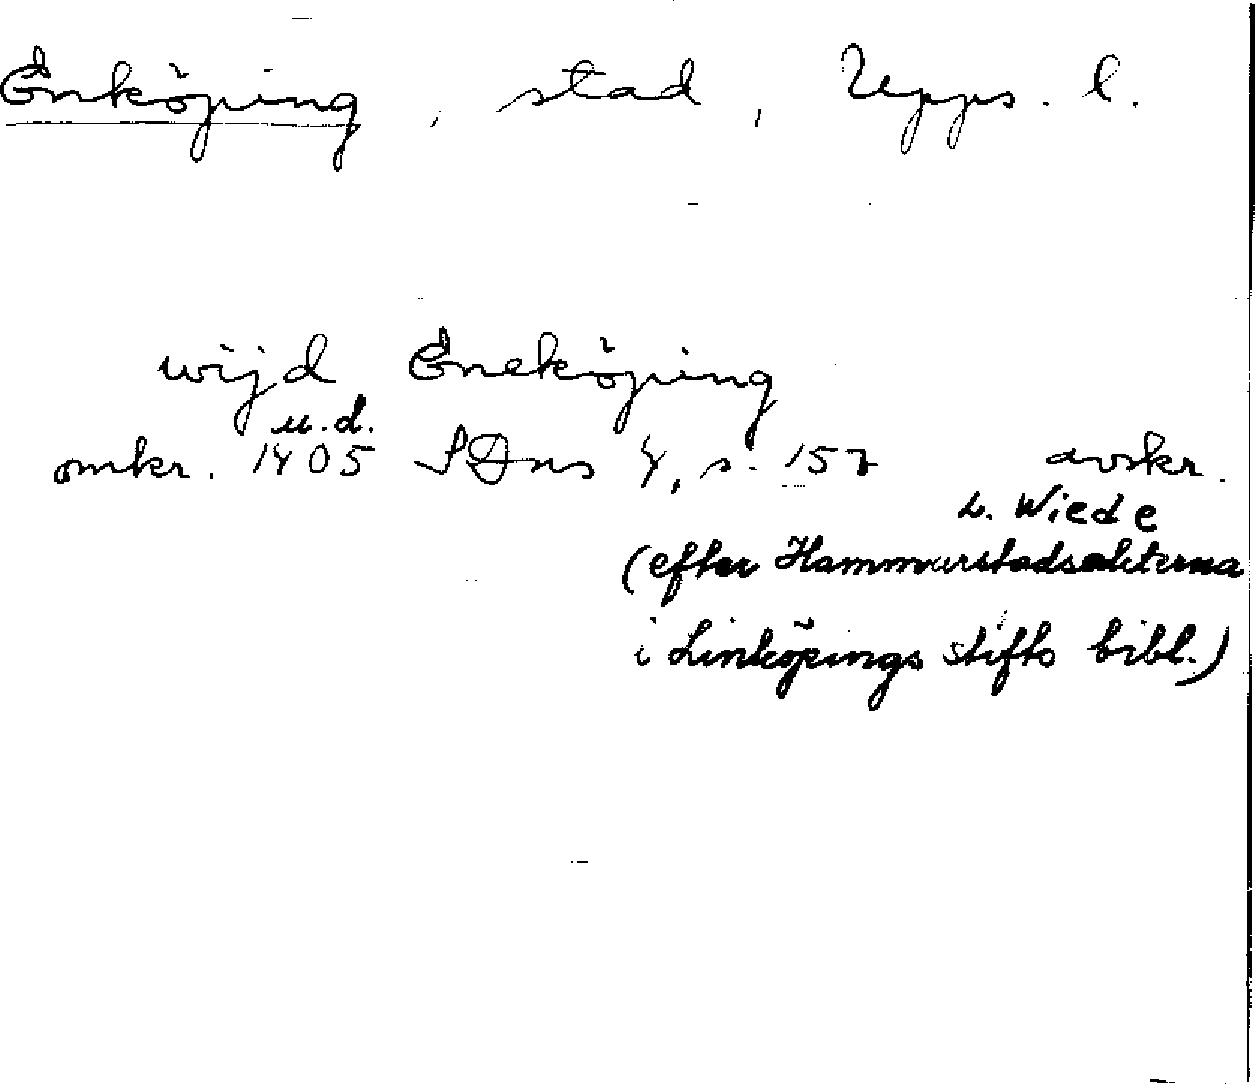 Enköping, stad, Upps. l.
wijd Eneköping
u.d.
omkr. 1405 SDns 4, s. 157 avskr.
L. Wiede
(efter Hammarstadsakterna
i Linköpings stifts bibl.)